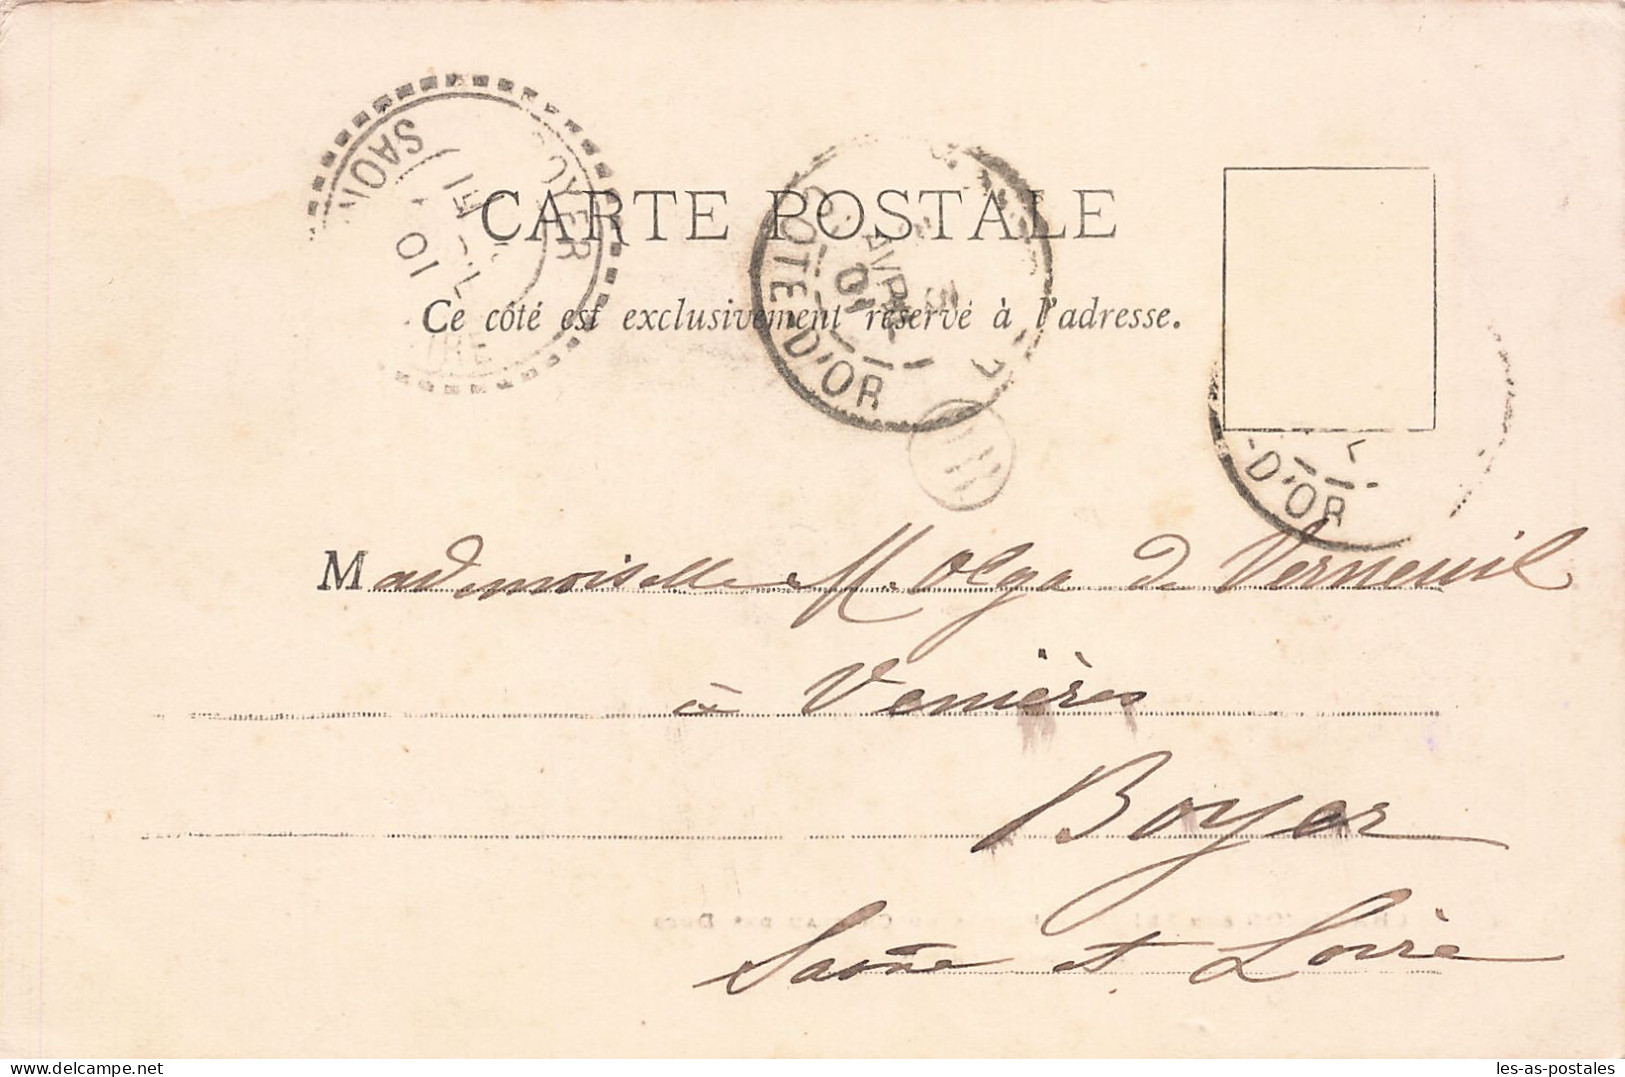 CARTE POSTALE
Ce côté est exclusivement réservé à l'adresse.
BOYER
SAON
15
01
IRE
COTE-D'OR
AVRIL
01
-D'OR
Mademoiselle M. Olga de Verneuil
à Venières
Boyer
Saône et Loire
delcampe.net
les-as-postales